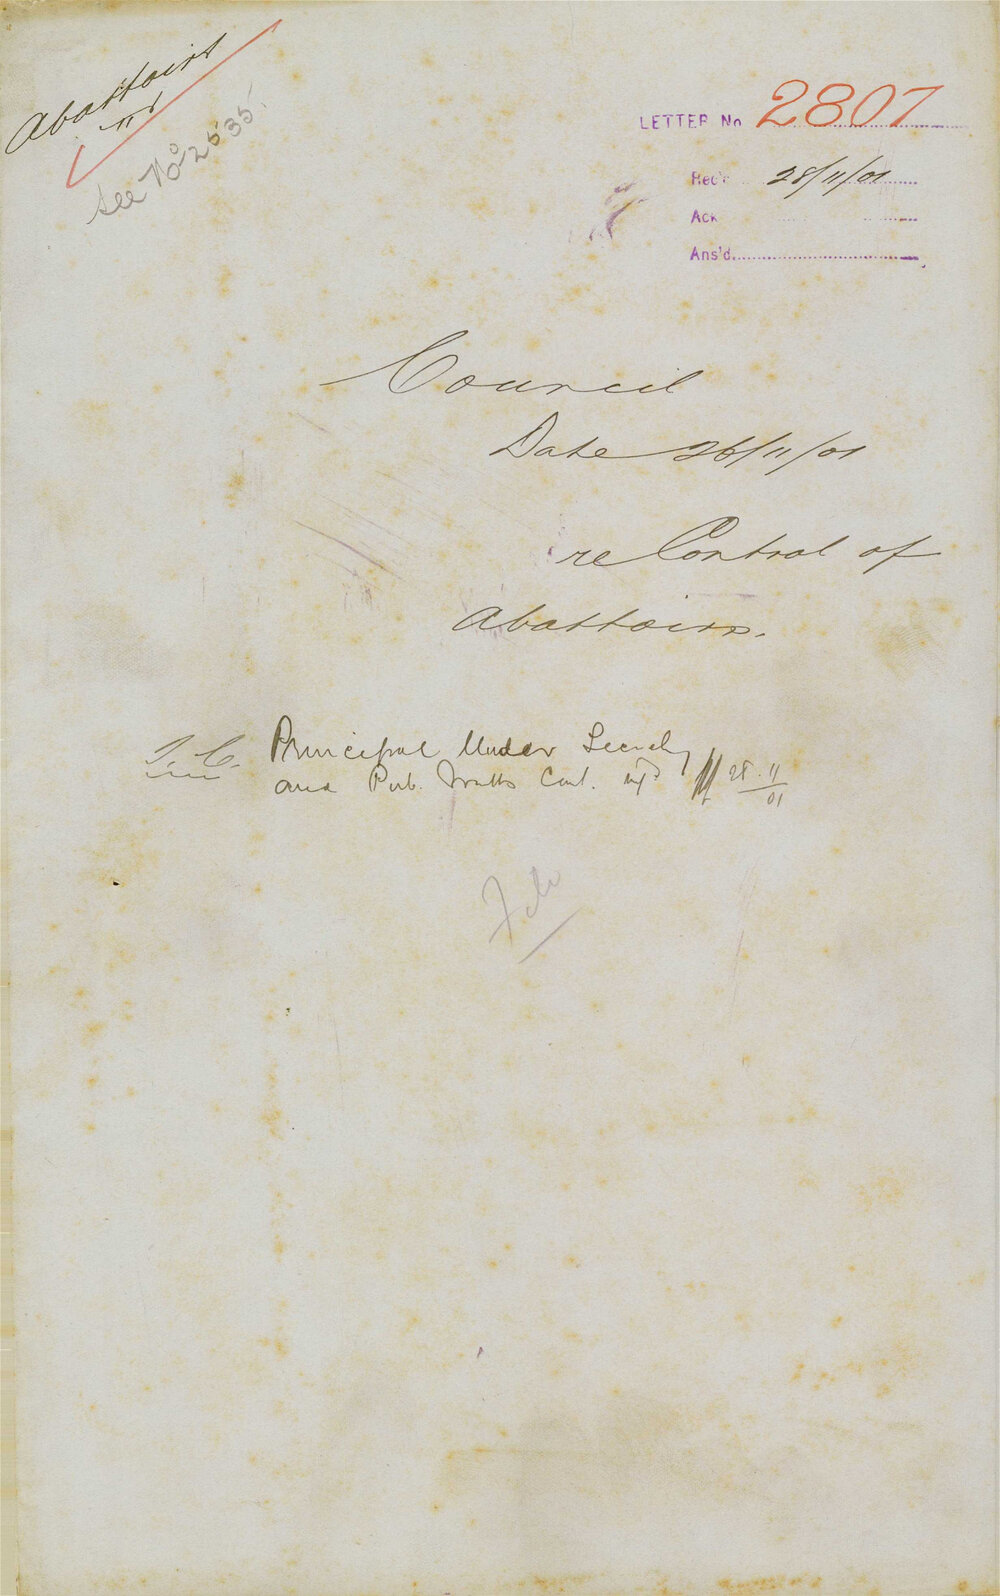 Abattoirs
See No 2535.
LETTER No 2807
Rec'd 28/11/01
Ack
Ans'd
Council
Date 26/11/01
re Control of
Abattoirs.
T. C. Principal Under Secrety
and Pub. Works Com. 28.11
01
File